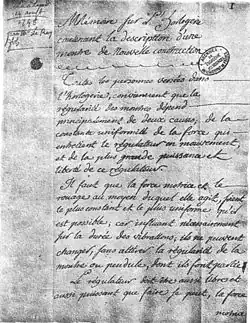 1
Mémoire sur L'horlogerie
contenant la description d'une
montre de nouvelle construction
Toutes les personnes versées dans
l'horlogerie, conviennent que la
régularité des montres dépend
principalement de deux causes, de la
constante uniformité de la force qui
entretient le régulateur en mouvement,
et de la plus grande puissance et
liberté de ce régulateur.
Il faut que la force motrice et le
rouage au moyen duquel elle agit, soient
le plus constant et le plus uniforme qu'il
est possible, car influant nécessairement
sur la durée des vibrations, ils ne peuvent
changer, sans altérer la régularité de la
montre ou pendule, dont ils font partie.
Le régulateur doit être aussi libre et
aussi puissant que faire se peut, la force
motrice